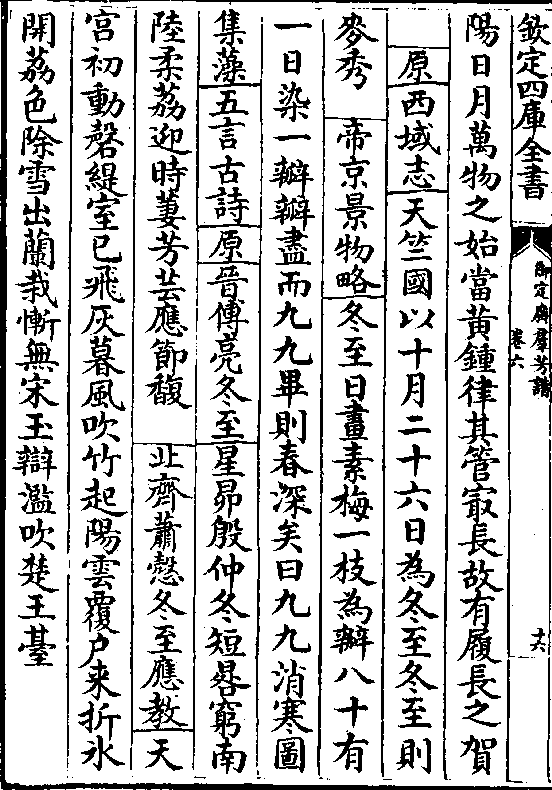 欽定四庫全書
御定廣羣芳譜
卷六
十六
陽日月萬物之始當黃鍾律其管㝡長故有履長之賀
原西域志天竺國以十月二十六日為冬至冬至則
麥秀 帝京景物略冬至日畫素梅一枝為瓣八十有
一日染一瓣瓣盡而九九畢則春深矣曰九九消寒圖
集藻五言古詩原晉傅亮冬至星昴殷仲冬短晷窮南
陸柔荔迎時萋芳芸應節馥 北齊蕭慤冬至應教天
宮初動磬緹室已飛灰暮風吹竹起陽雲覆户来折氷
開荔色除雪出蘭栽慚無宋玉辯濫吹楚王臺